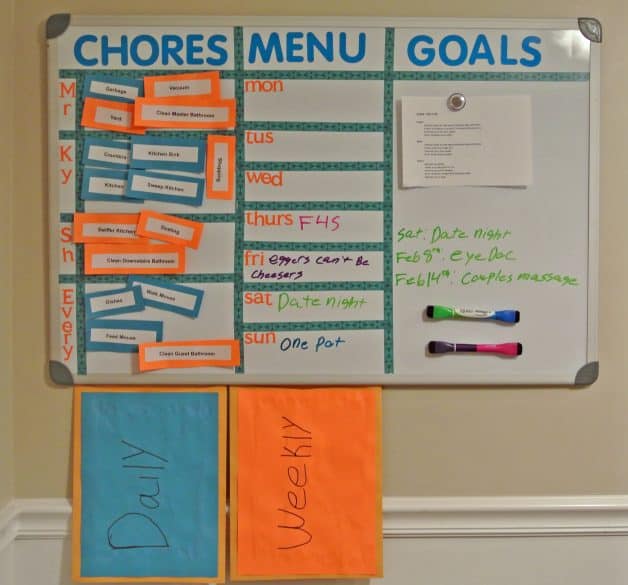 CHORES
MENU
GOALS
Mr
Garbage
Vacuum
Yard
Clean Master Bathroom
Ky
Counters
Kitchen Sink
Kitchen
Sweep Kitchen
Sh
Swiffer Kitchen
Dusting
Clean Downstairs Bathroom
Every
Dishes
Walk Mouse
Feed Mouse
Clean Guest Bathroom
mon
tus
wed
thurs F4S
fri eggers can't Be
cheesers
sat Date night
sun One Pot
Sat: Date night
Feb 8th: eye Doc
Feb 14th: Couples massage
Daily
Weekly